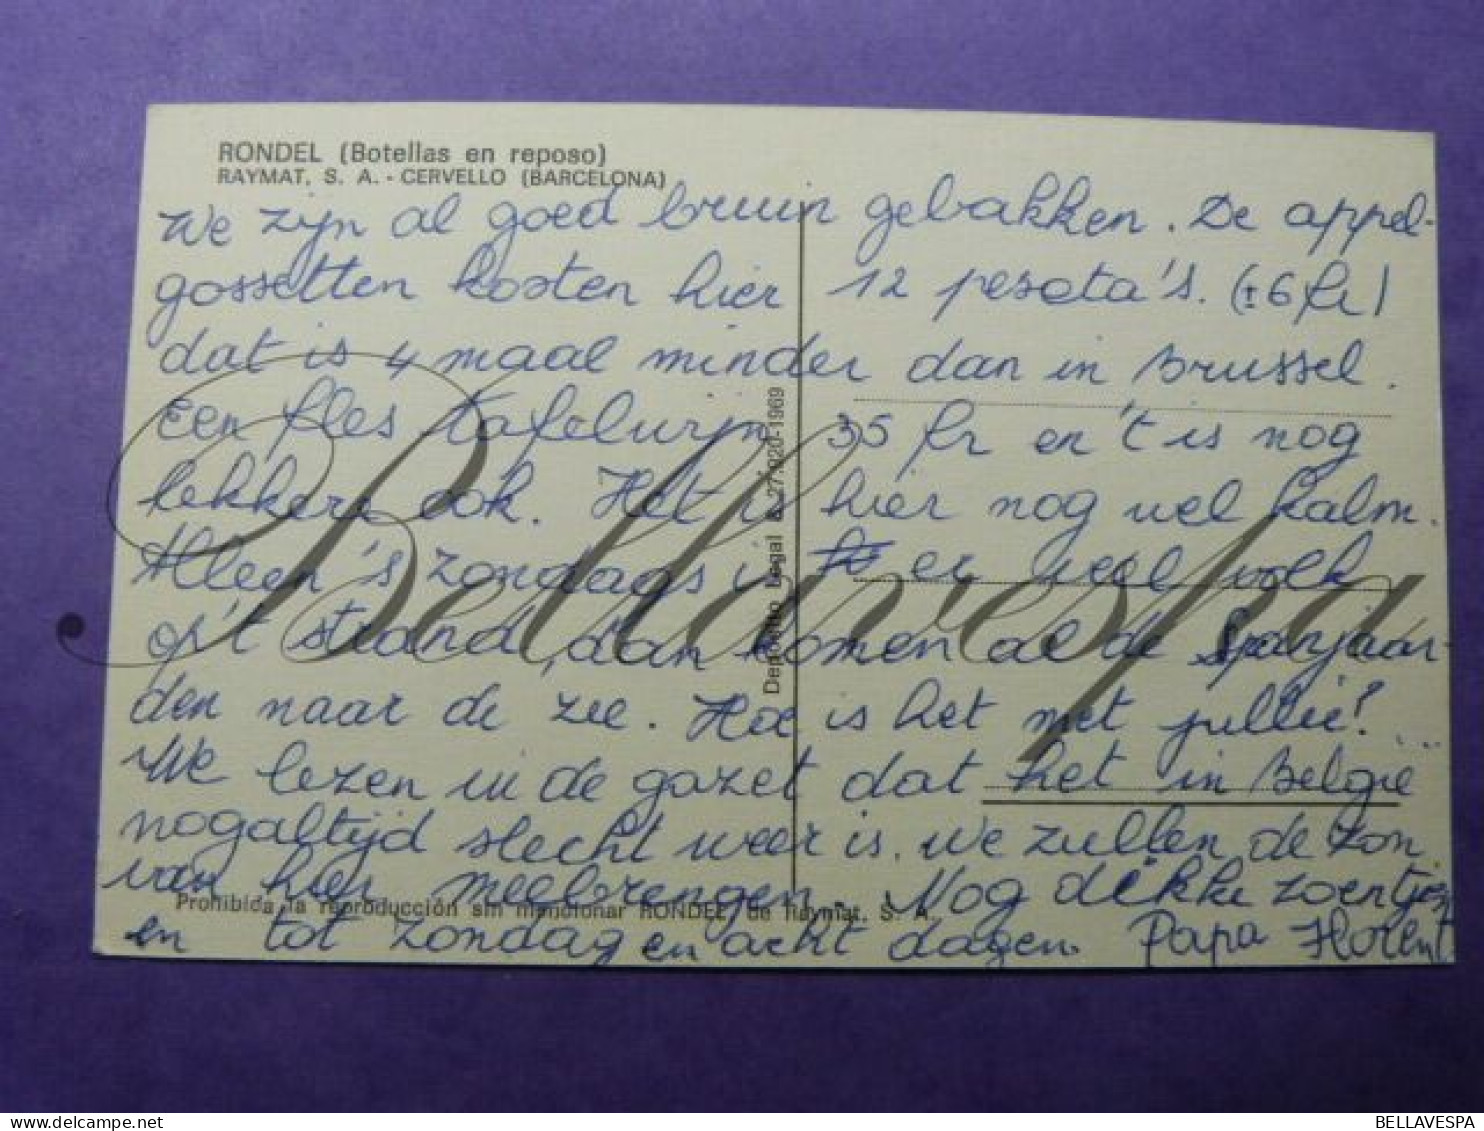 RONDEL (Botellas en reposo)
RAYMAT, S. A. - CERVELLO (BARCELONA)
We zijn al goed bruin gebakken. De appel-
gossetten kosten hier 12 peseta's. (±6 fr)
dat is 4 maal minder dan in Brussel.
Een fles tafelwijn 35 fr en 't is nog
lekkere ook. Het is hier nog wel kalm.
Alleen 's zondags is er veel volk
op 't strand, dan komen al de Spanjaar-
den naar de zee. Hoe is het met jullie? ...
We lezen in de gazet dat het in Belgie
nogaltijd slecht weer is. We zullen de zon
van hier meebrengen. Nog dikke zoentjes
en tot zondag en acht dagen. Papa Florent
Prohibida la reproducción sin mencionar RONDEL de Raymat, S. A.
Deposito Legal B. 27.920-1969
Bellavespa
BELLAVESPA